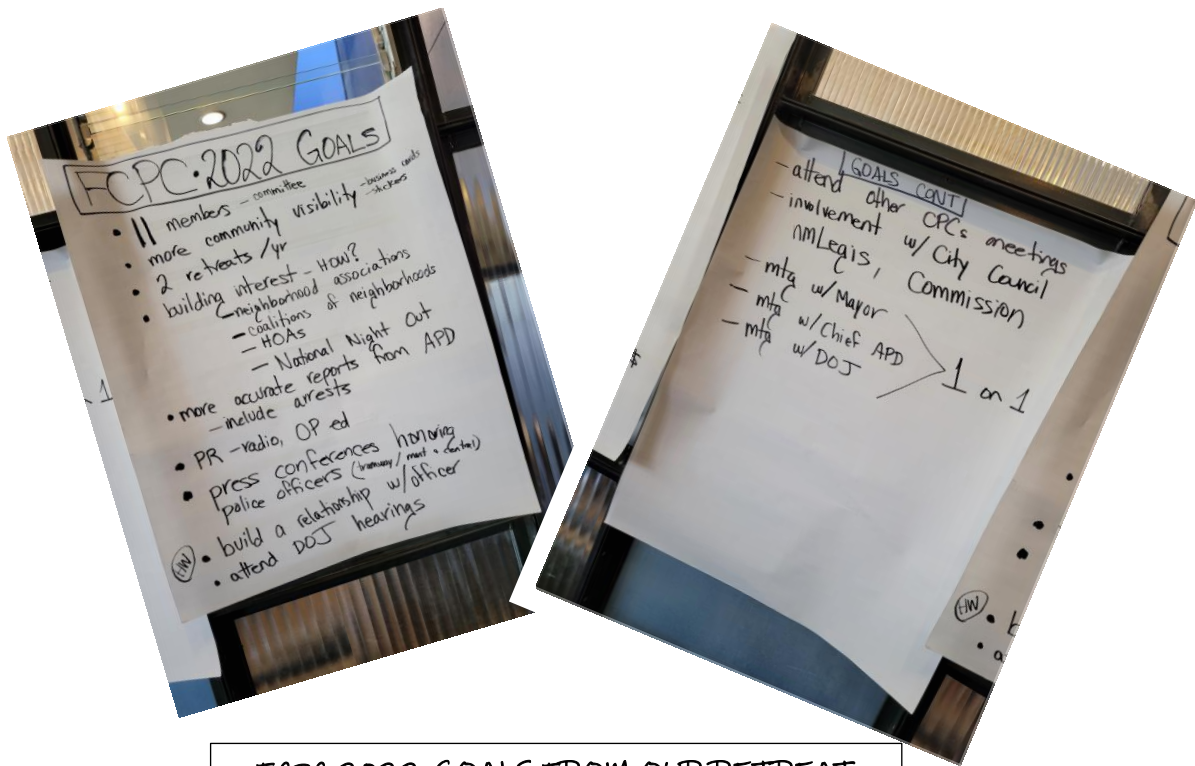 FCPC·2022 GOALS
• 11 members - committee
• more community visibility - business cards
- stickers
• 2 retreats /yr
• building interest - HOW?
- neighborhood associations
- coalitions of neighborhoods
- HOAs
- National Night Out
• more accurate reports from APD
- include arrests
• PR - radio, OP ed
• press conferences honoring
police officers (tramway/mont + central)
HW • build a relationship w/officer
• attend DOJ hearings
GOALS CONT
- attend other CPCs meetings
- involvement w/ City Council
NMLegis, Commission
- mtg w/Mayor
- mtg w/Chief APD
- mtg w/DOJ
1 on 1
HW
FCPC 2022 GOALS FROM OUR RETREAT